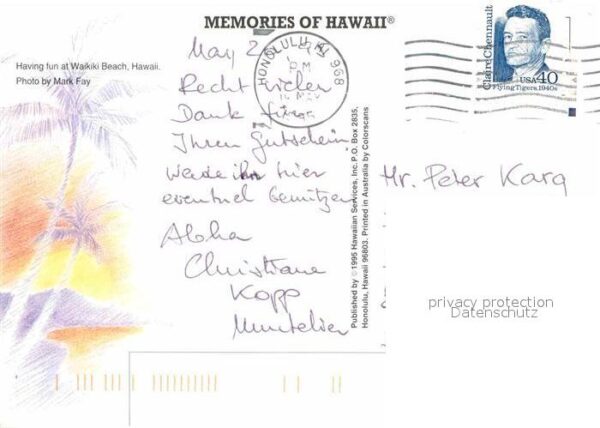 MEMORIES OF HAWAII®
Having fun at Waikiki Beach, Hawaii.
Photo by Mark Fay
May 2
Recht vielen
Dank für
Ihren Gutschein
werde ihn hier
eventuel benützen
Aloha
Christiane
Kopp
Muntelier
Published by ©1995 Hawaiian Services, Inc. P.O. Box 2835,
Honolulu, Hawaii 96803. Printed in Australia by Colorscans
HONOLULU HI 968
PM
Claire Chennault
USA 40
Flying Tigers, 1940s
Mr. Peter Karg
privacy protection
Datenschutz